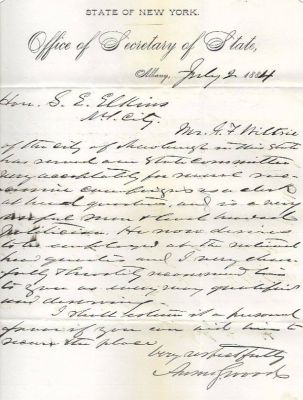 STATE OF NEW YORK.
Office of Secretary of State,
Albany, July 2 1884
Hon. S. E. Elkins
N.Y. City.
Mr. G. F.
of the city of Newburgh in this State
has served our State Committee
very acceptably for several
campaigns as a clerk
at head quarters, and is a very
useful man &
politician. He now desires
to be employed at the national
head quarters and I very cheer-
fully & heartily recommend him
to you as every way qualified
and deserving.
I shall esteem it a personal
favor if you can aid him to
secure the place.
Very respectfully